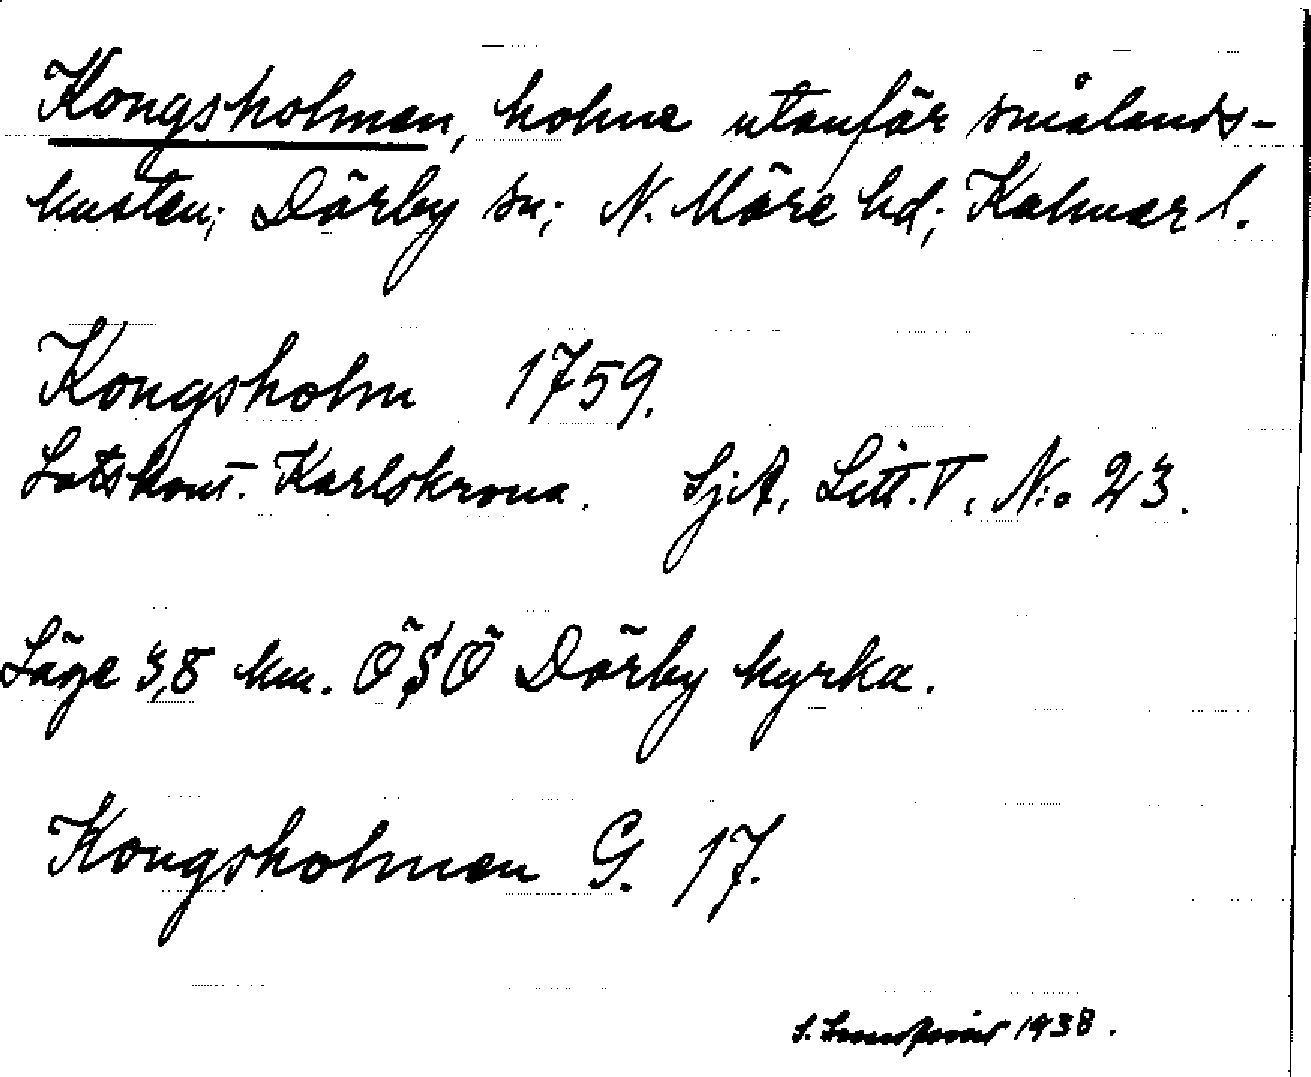 Kongsholmen, holme utanför smålands-
kusten; Dörby sn; N. Möre hd; Kalmar l.
Kongsholm 1759.
Lotskont. Karlskrona. SjA, Litt. T, N:o 23.
Läge 3,8 km. ÖSÖ Dörby kyrka.
Kongsholmen G. 17.
S. 1938.